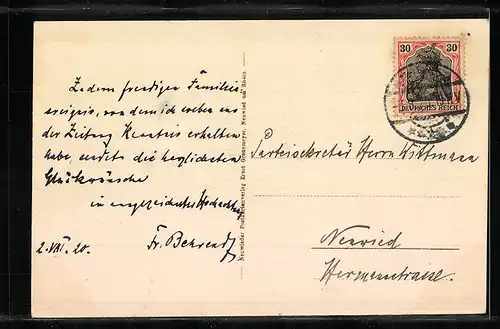 Zu dem freudigen Familien
ereignis, von dem ich soeben aus
der Zeitung Kenntnis erhalten
habe, sendet die herzlichsten
Glückwünsche
in ausgezeichneter Hochachtg
2. VIII. 20. Fr. Behrendt
Neuwieder Postkartenverlag Ernst Neuwied am Rhein
30 30
DEUTSCHES REICH
Parteisekretär Herrn Wittmann
Neuwied
Hermannstrasse.